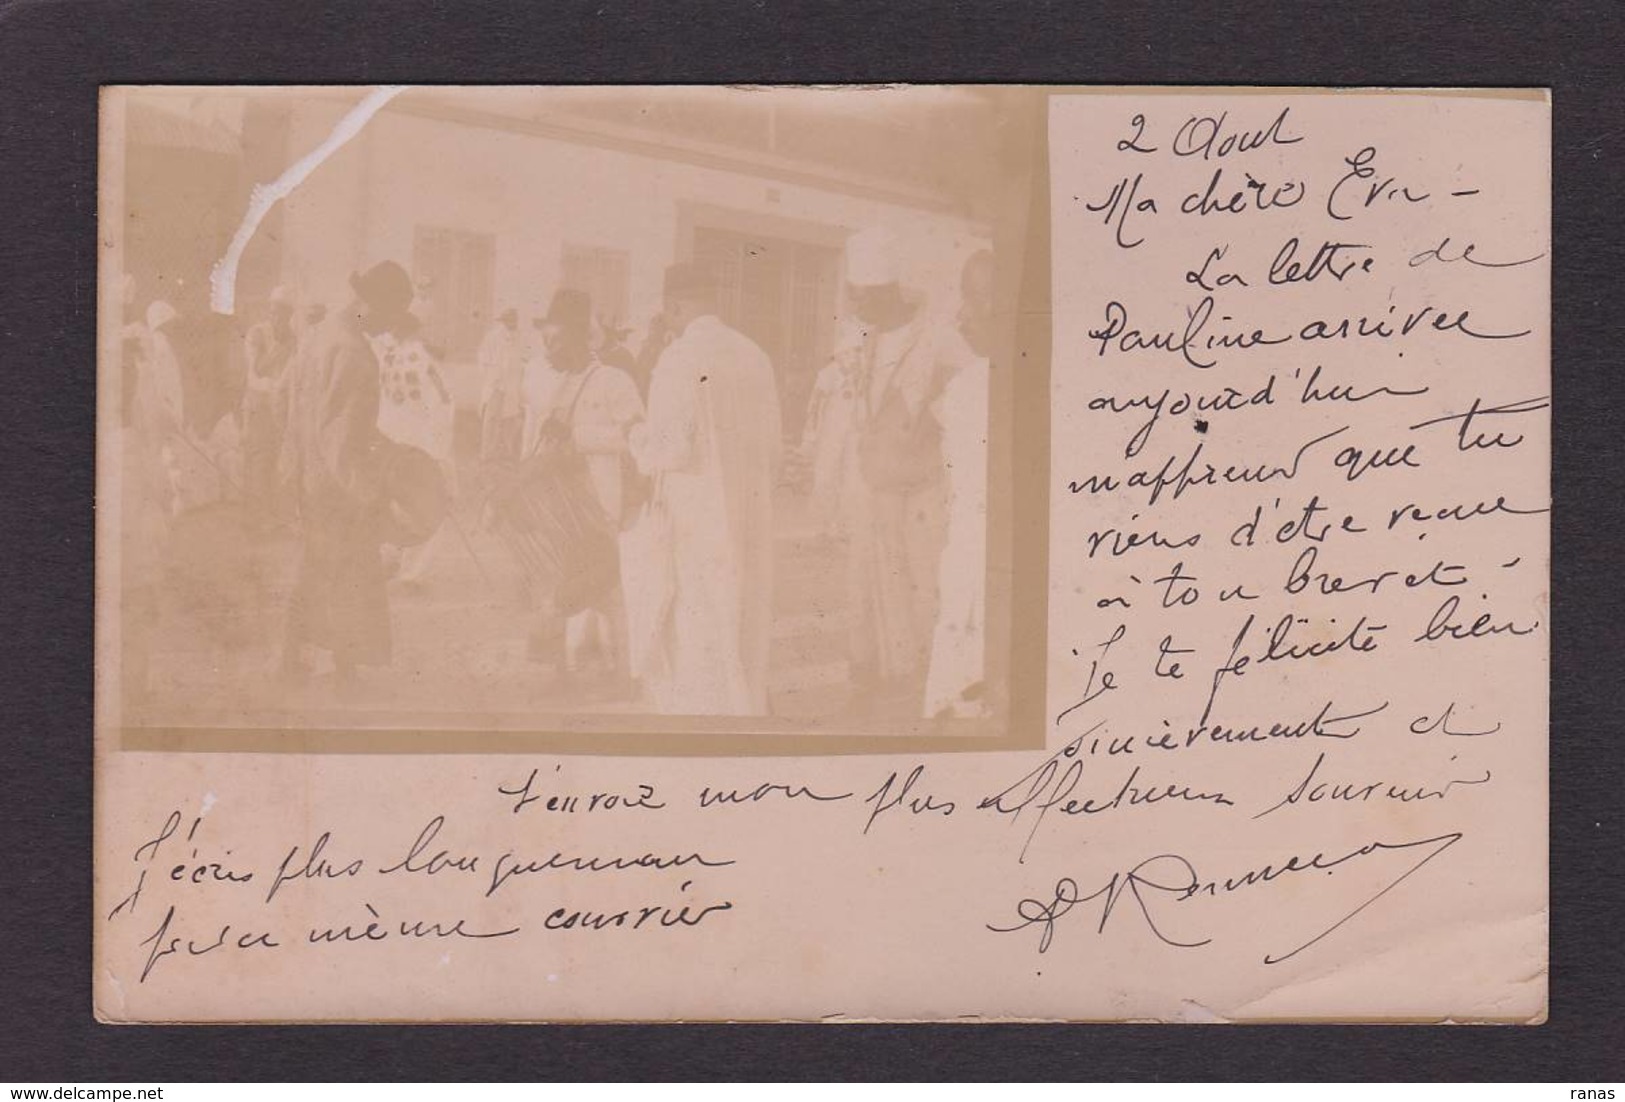 2 Aout
Ma chère Eva -
La lettre de
Pauline arrivée
aujourd'hui
m'apprend que tu
viens d'être reçue
à ton brevet -
Je te félicite bien
sincèrement et
t'envoie mon plus affectueux souvenir
J'écris plus longuement
par ce même courrier
delcampe.net
ranas